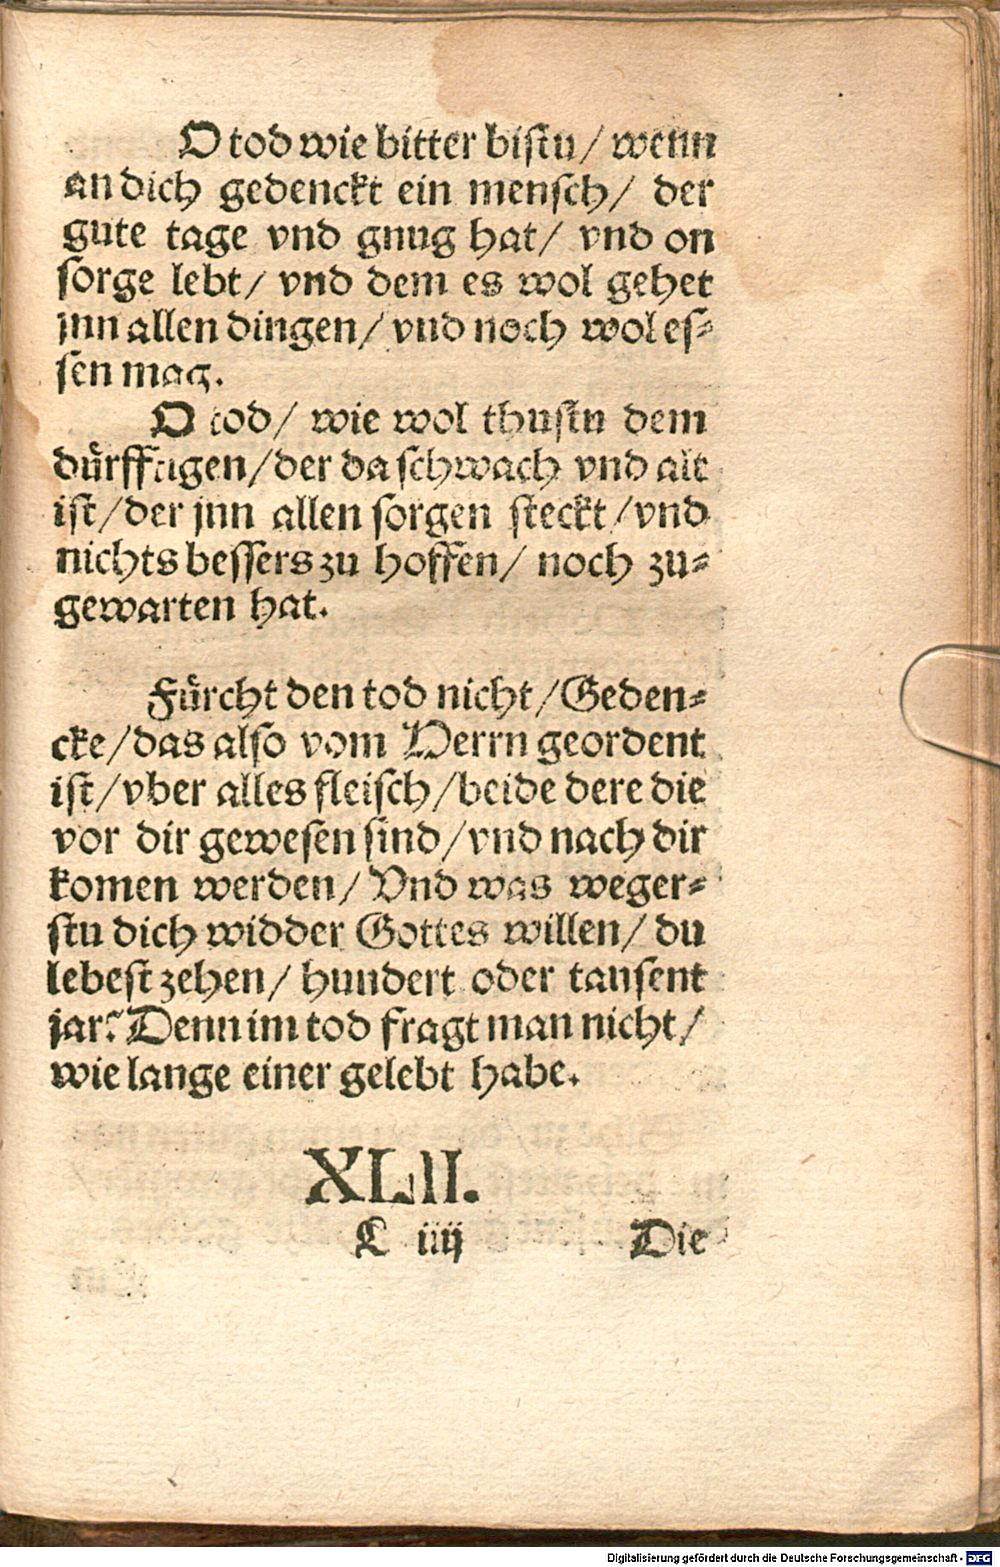 O tod wie bitter bistu / wenn
an dich gedenckt ein mensch / der
gute tage vnd gnug hat / vnd on
sorge lebt / vnd dem es wol gehet
jnn allen dingen / vnd noch wol es⸗
sen mag.
O tod / wie wol thustu dem
dürfftigen / der da schwach vnd alt
ist / der jnn allen sorgen steckt / vnd
nichts bessers zu hoffen / noch zu⸗
gewarten hat.
Fürcht den tod nicht / Geden⸗
cke / das also vom Herrn geordent
ist / vber alles fleisch / beide dere die
vor dir gewesen sind / vnd nach dir
komen werden / Vnd was weger⸗
stu dich widder Gottes willen / du
lebest zehen / hundert oder tausent
jar? Denn im tod fragt man nicht /
wie lange einer gelebt habe.
XLII.
C iiij Die
Digitalisierung gefördert durch die Deutsche Forschungsgemeinschaft - DFG